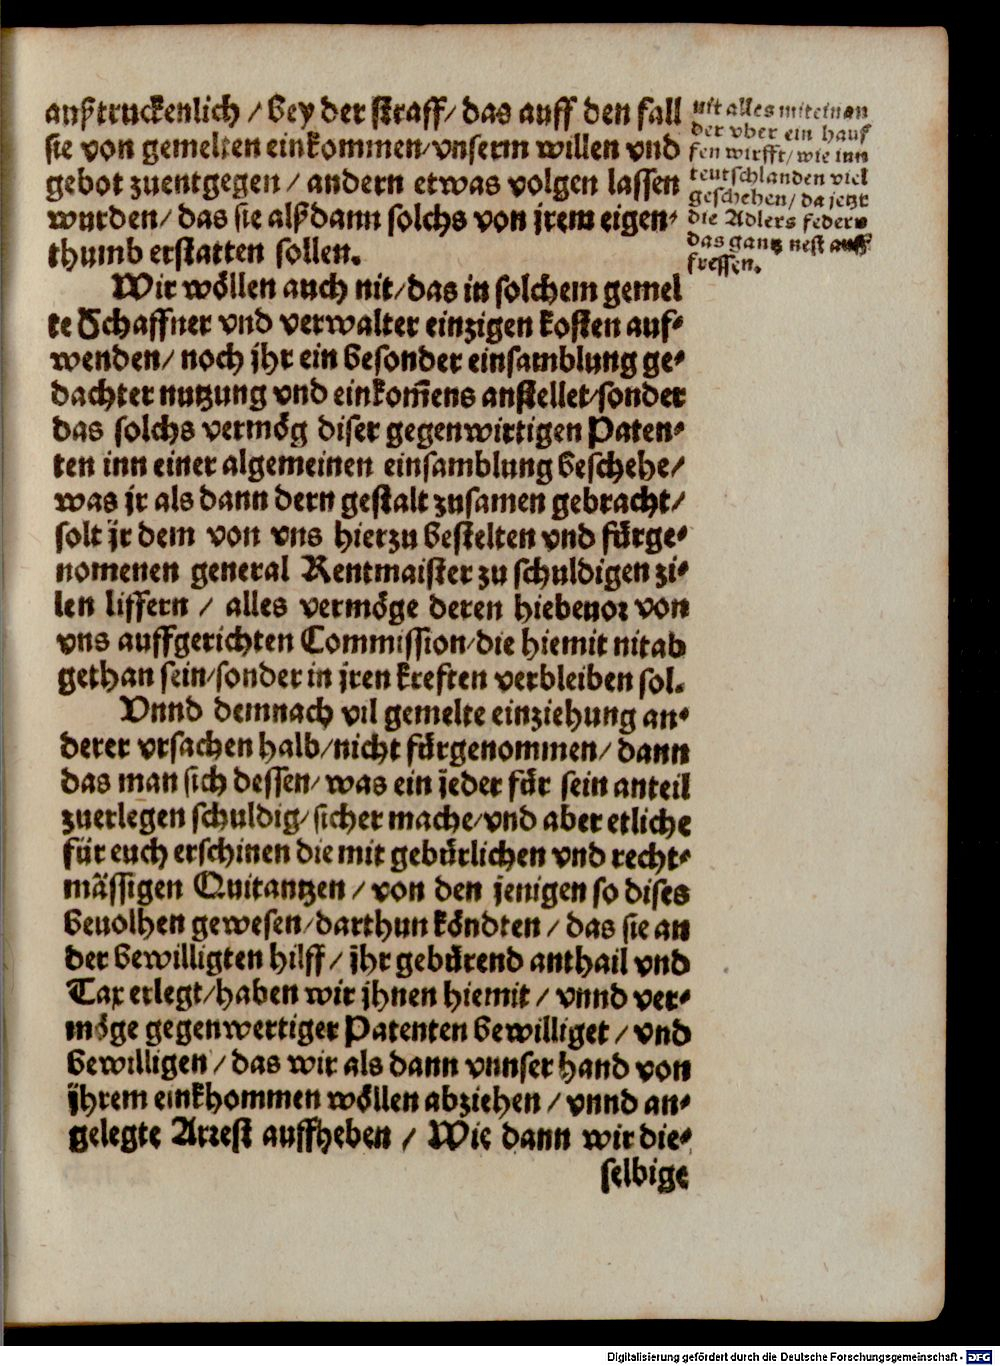 außtruckenlich / bey der straff / das auff den fall
sie von gemelten einkommen / vnserm willen vnd
gebot zuentgegen / andern etwas volgen lassen
wurden / das sie alßdann solchs von jrem eigen-
thumb erstatten sollen.
Wir wöllen auch nit / das in solchem gemel
te Schaffner vnd verwalter einzigen kosten auf-
wenden / noch jhr ein besonder einsamblung ge-
dachter nutzung vnd einkom̃ens anstellet / sonder
das solchs vermög diser gegenwirtigen Paten-
ten inn einer algemeinen einsamblung beschehe /
was jr als dann dern gestalt zusamen gebracht /
solt jr dem von vns hierzu bestelten vnd fürge-
nomenen general Rentmaister zu schuldigen zi-
len liffern / alles vermöge deren hiebeuor von
vns auffgerichten Commission / die hiemit nit ab
gethan sein / sonder in jren kreften verbleiben sol.
Vnnd demnach vil gemelte einziehung an-
derer vrsachen halb / nicht fürgenommen / dann
das man sich dessen / was ein jeder für sein anteil
zuerlegen schuldig / sicher mache / vnd aber etliche
für euch erschinen die mit gebürlichen vnd recht-
mässigen Quitantzen / von den jenigen so dises
beuolhen gewesen / darthun köndten / das sie an
der bewilligten hilff / jhr gebürend anthail vnd
Tax erlegt / haben wir jhnen hiemit / vnnd ver-
möge gegenwertiger Patenten bewilliget / vnd
bewilligen / das wir als dann vnnser hand von
jhrem einkhommen wöllen abziehen / vnnd an-
gelegte Arrest auffheben / Wie dann wir die-
selbige
nit alles miteinan
der vber ein hauf
fen wirfft / wie inn
teutschlanden viel
geschehen / da jetzt
die Adlers federn
das gantz nest auff
fressen.
Digitalisierung gefördert durch die Deutsche Forschungsgemeinschaft - DFG